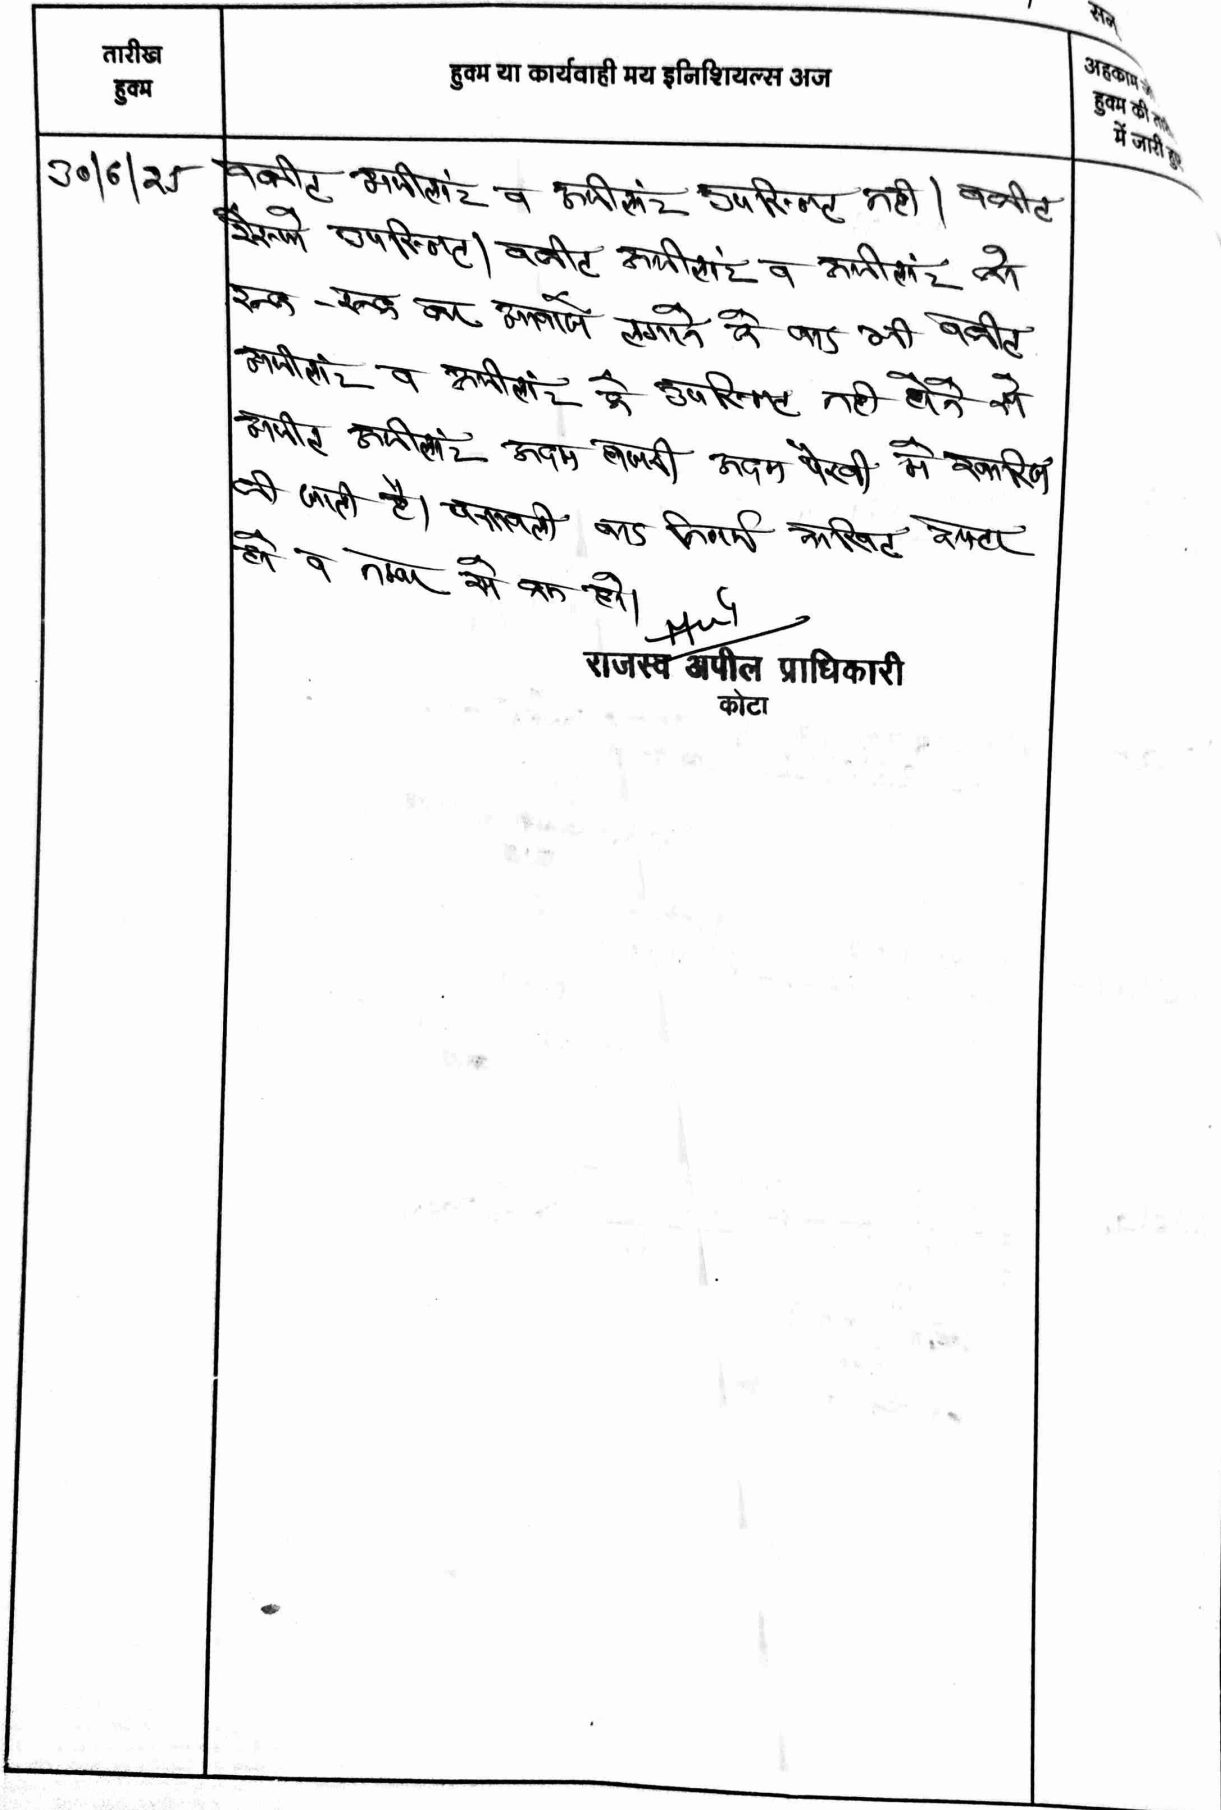 सन्
तारीख
हुक्म
हुक्म या कार्यवाही मय इनिशियल्स अज
अहकाम
हुक्म की
में जारी हुए
30/6/25 वकील अपीलांट व अपीलांट उपस्थित नही। वकील
रेस्पो उपस्थित। वकील अपीलांट व अपीलांट को
रूक-रूक कर आवाजे लगाने के बाद भी वकील
अपीलांट व अपीलांट के उपस्थित नही होने से
अपील अपीलांट अदम हाजरी अदम पैरवी मे खारिज
की जाती है। पत्रावली बाद निर्णय दाखिल दफ्तर
हो व नम्बर से कम हो।
राजस्व अपील प्राधिकारी
कोटा